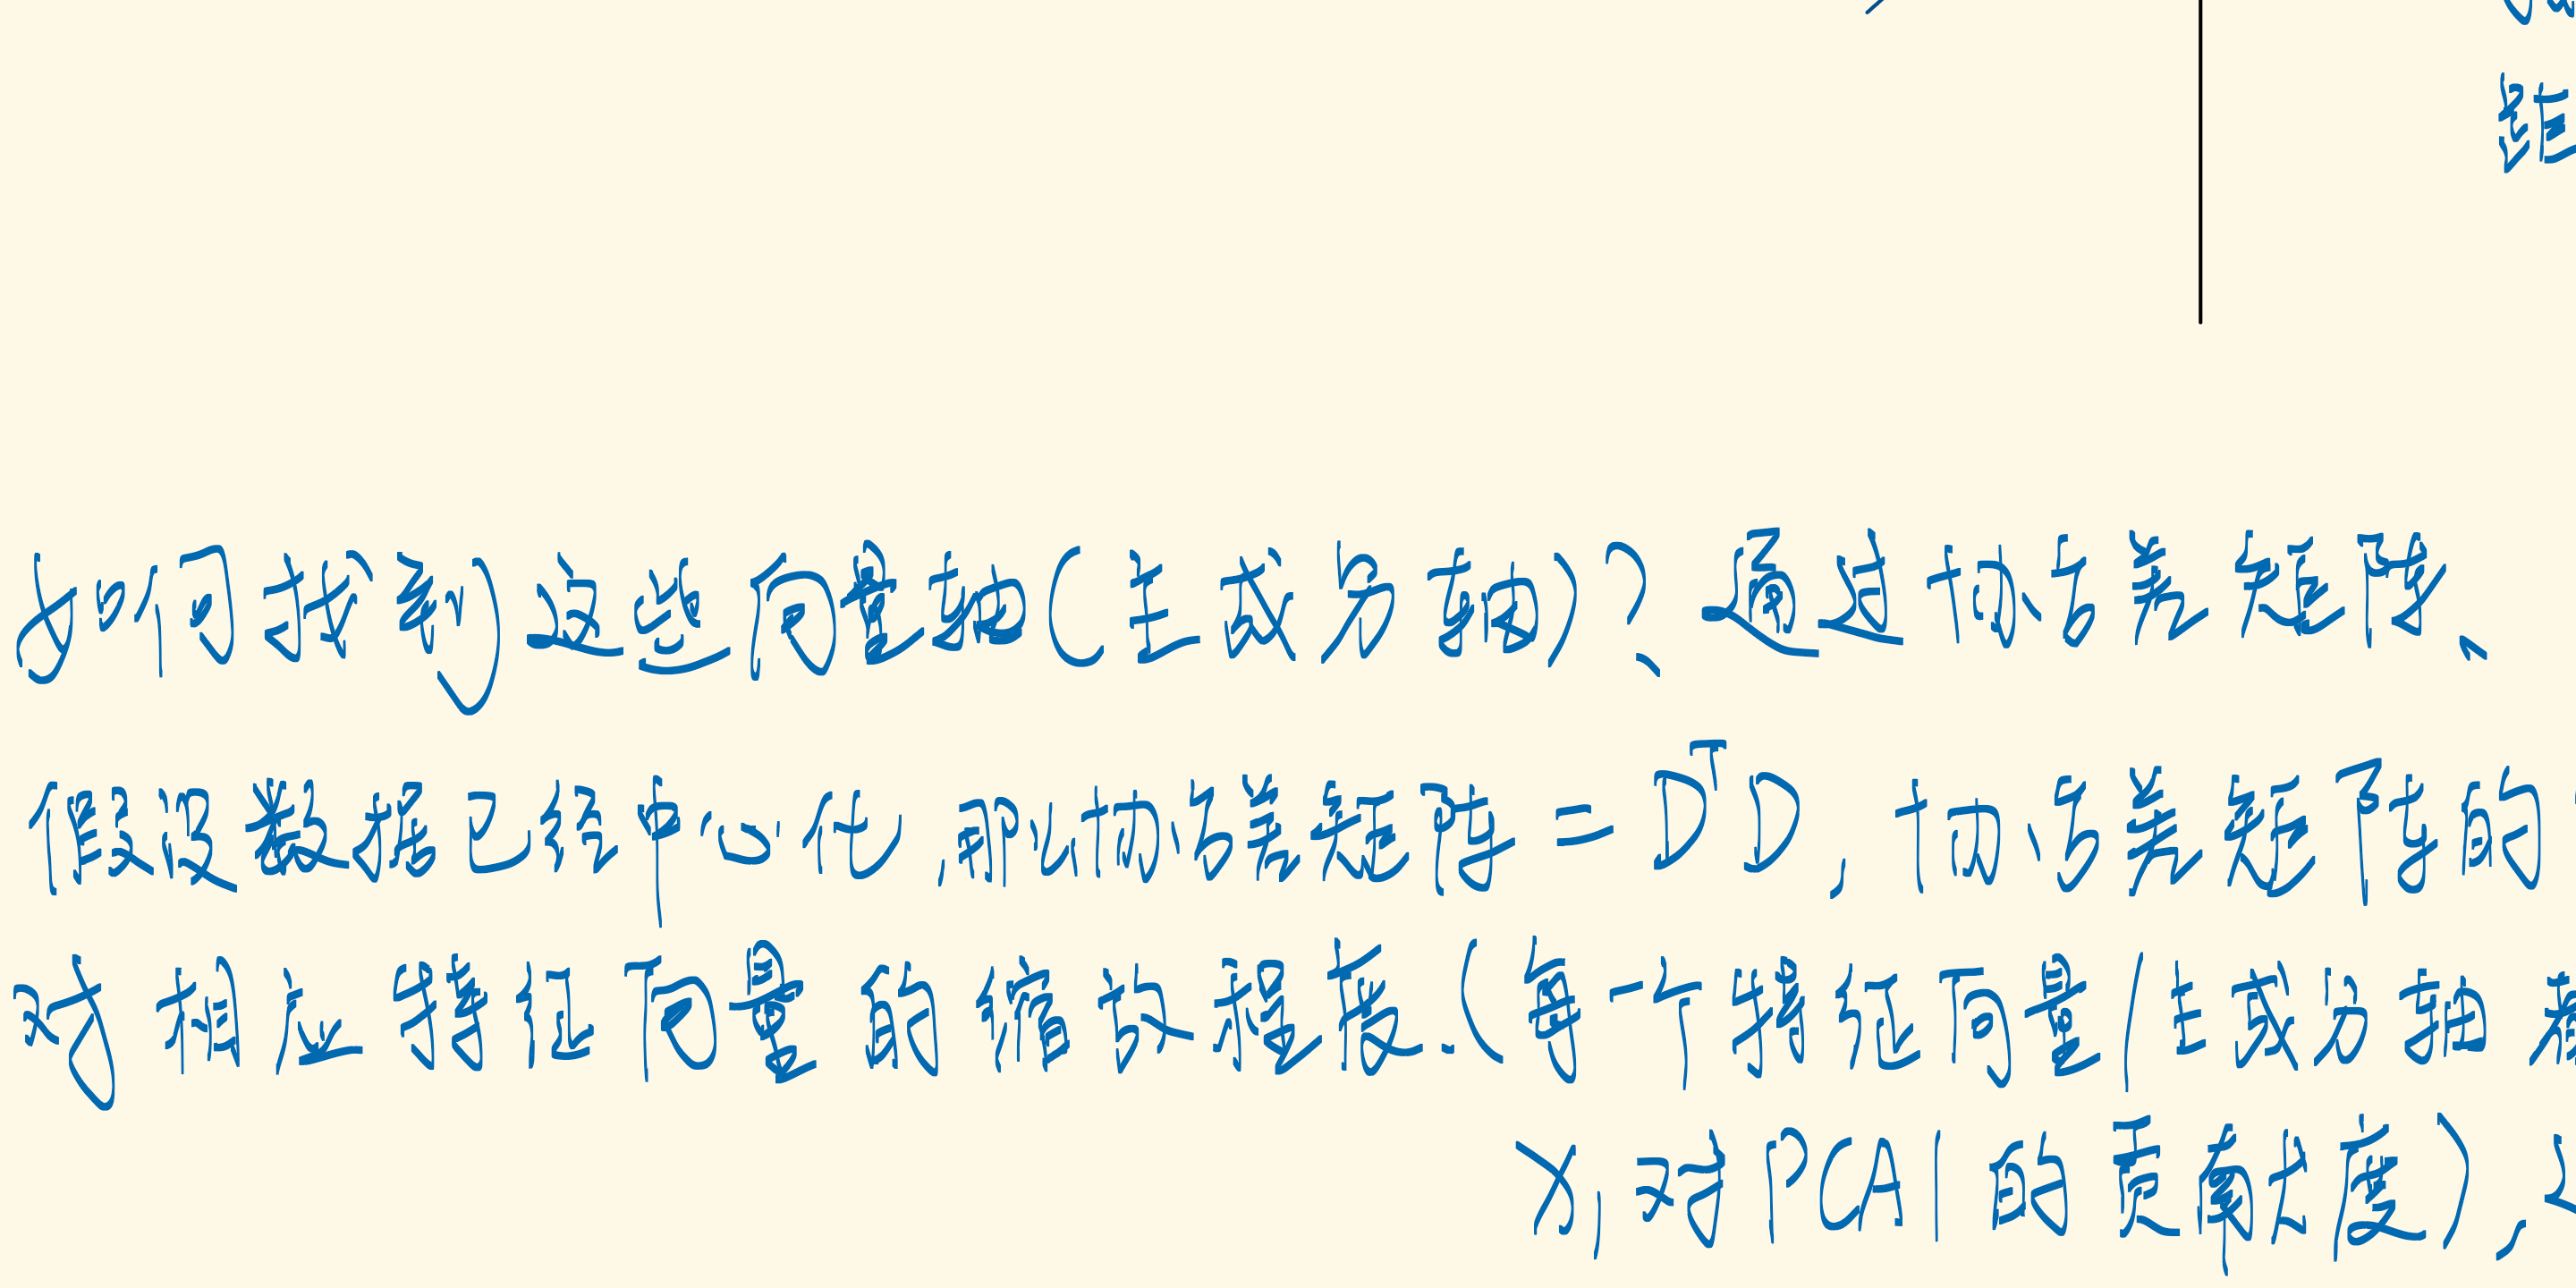 距
如何找到这些向量轴(主成分轴)?、通过协方差矩阵、
假设数据已经中心化,那么协方差矩阵 = DᵀD, 协方差矩阵的
对相应特征向量的缩放程度.(每一个特征向量/主成分轴
X₁对PCA1的贡献大度),